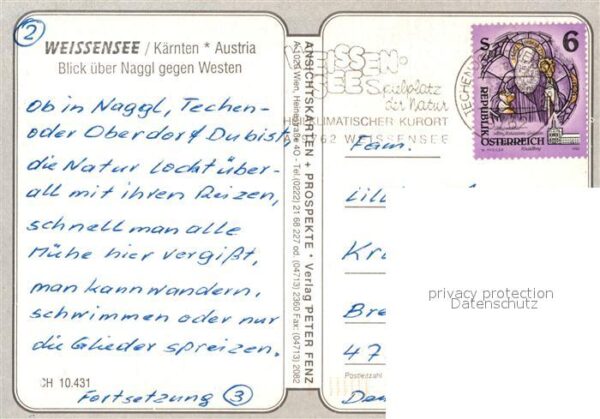 2
WEISSENSEE / Kärnten * Austria
Blick über Naggl gegen Westen
Ob in Naggl, Techen-
oder Oberdorf Du bist,
die Natur lockt über-
all mit ihren Reizen,
schnell man alle
Mühe hier vergißt,
man kann wandern,
schwimmen oder nur
die Glieder spreizen.
CH 10.431
Fortsetzung 3
ANSICHTSKARTEN + PROSPEKTE * Verlag PETER FENZ
A-1020 Wien, Heinestraße 40 - Tel. (0222) 21 68 227 od. (04713) 2360 Fax: (04713) 2082
WEISSEN-
SEE Spielplatz
der Natur
HEILKLIMATISCHER KURORT
WEISSENSEE
TECHEN
S 6
REPUBLIK
ÖSTERREICH
Fam.
Kr
Bre
47
Postleitzahl
privacy protection
Datenschutz